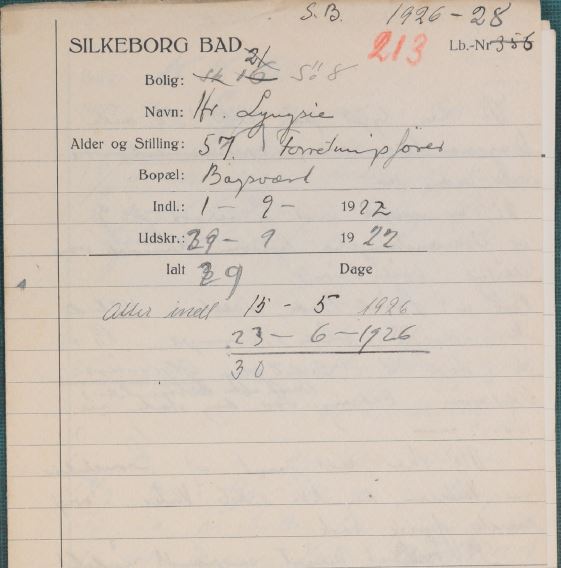 S.B. 1926-28
SILKEBORG BAD 213 Lb.-Nr 356
21
Bolig: 16 Sö 8
Navn: Hr. Lyngsie
Alder og Stilling: 57. Forretningsfører
Bopæl: Bagsværd
Indl.: 1 - 9 - 1922
Udskr.: 29 - 9 1922
Ialt 29 Dage
Atter indl 15 - 5 1926
23 - 6 - 1926
30